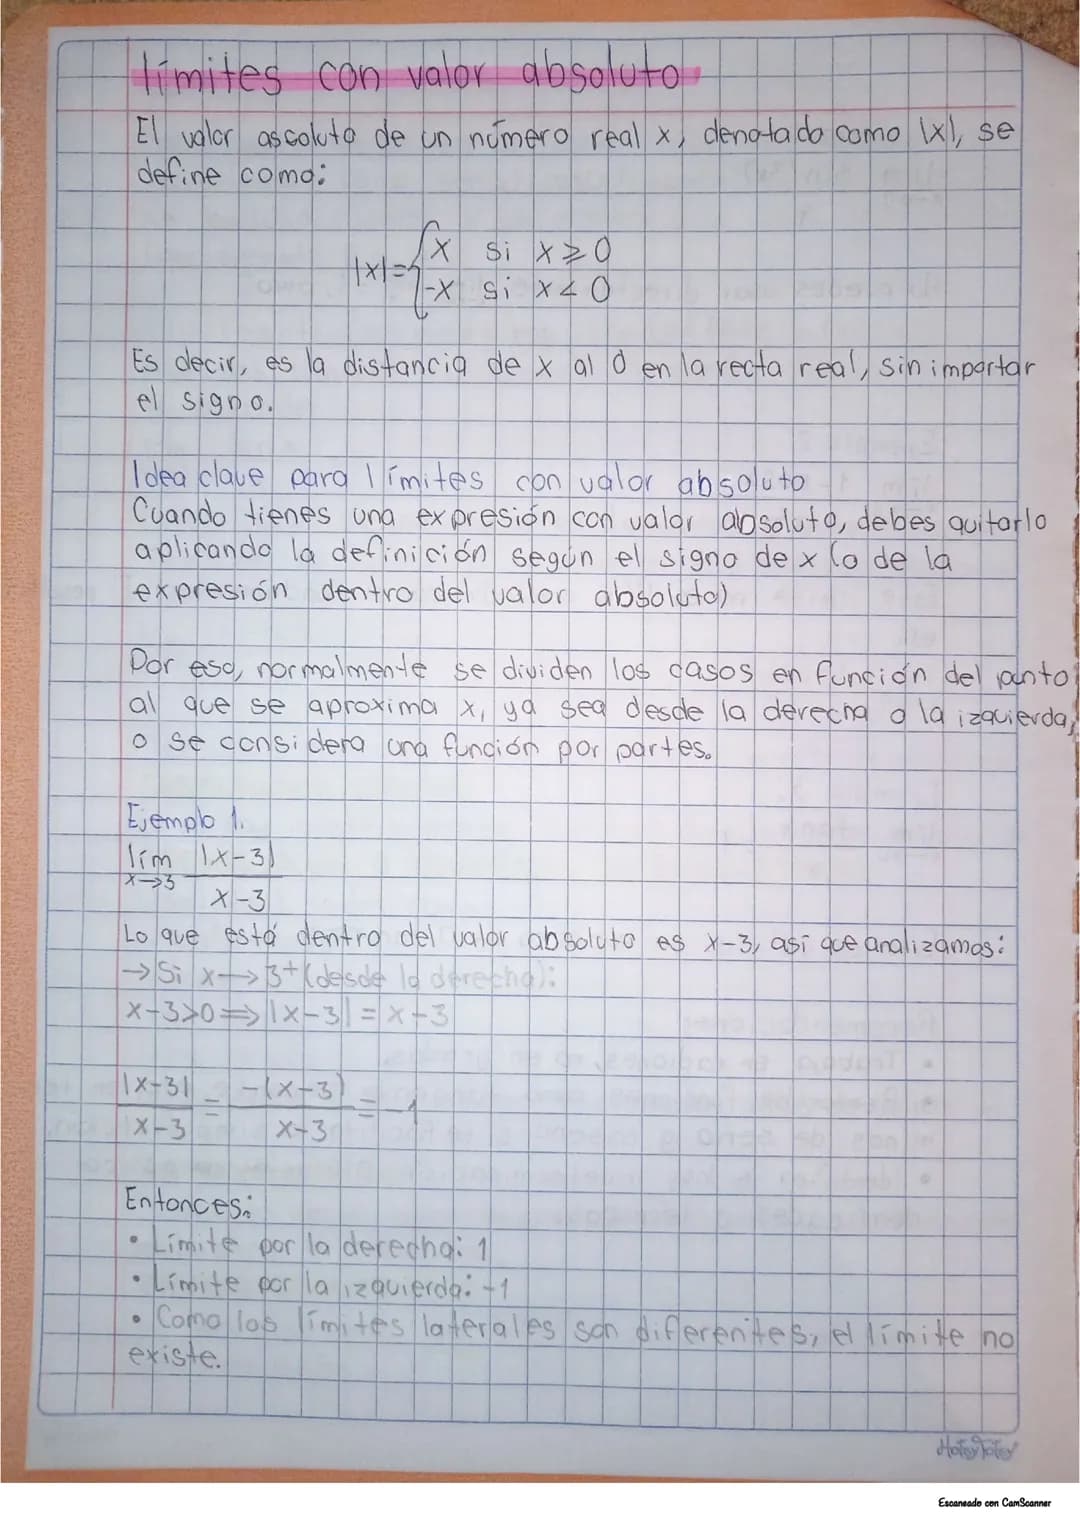 límites con valor absoluto
El valor ascoluto de un número real x, denotado como |x|, se
define como:
|x|={x si x≥0
-x si x<0
Es decir, es la distancia de x al 0 en la recta real, sin importar
el signo.
Idea clave para límites con valor absoluto
Cuando tienes una expresión con valor absoluto, debes quitarlo
aplicando la definición según el signo de x (o de la
expresión dentro del valor absoluto)
Por eso, normalmente se dividen los casos en función del punto
al que se aproxima x, ya sea desde la derecha o la izquierda,
o se considera una función por partes.
Ejemplo 1.
lím |x-3|
x→3
x-3
Lo que está dentro del valor absoluto es x-3, así que analizamos:
→Si x→3+(desde la derecha):
x-3>0⟹|x-3|=x-3
|x-3| = -(x-3) = -1
x-3 x-3
Entonces:
• Límite por la derecha: 1
• Límite por la izquierda: -1
• Como los límites laterales son diferentes, el límite no
existe.
Escaneado con CamScanner